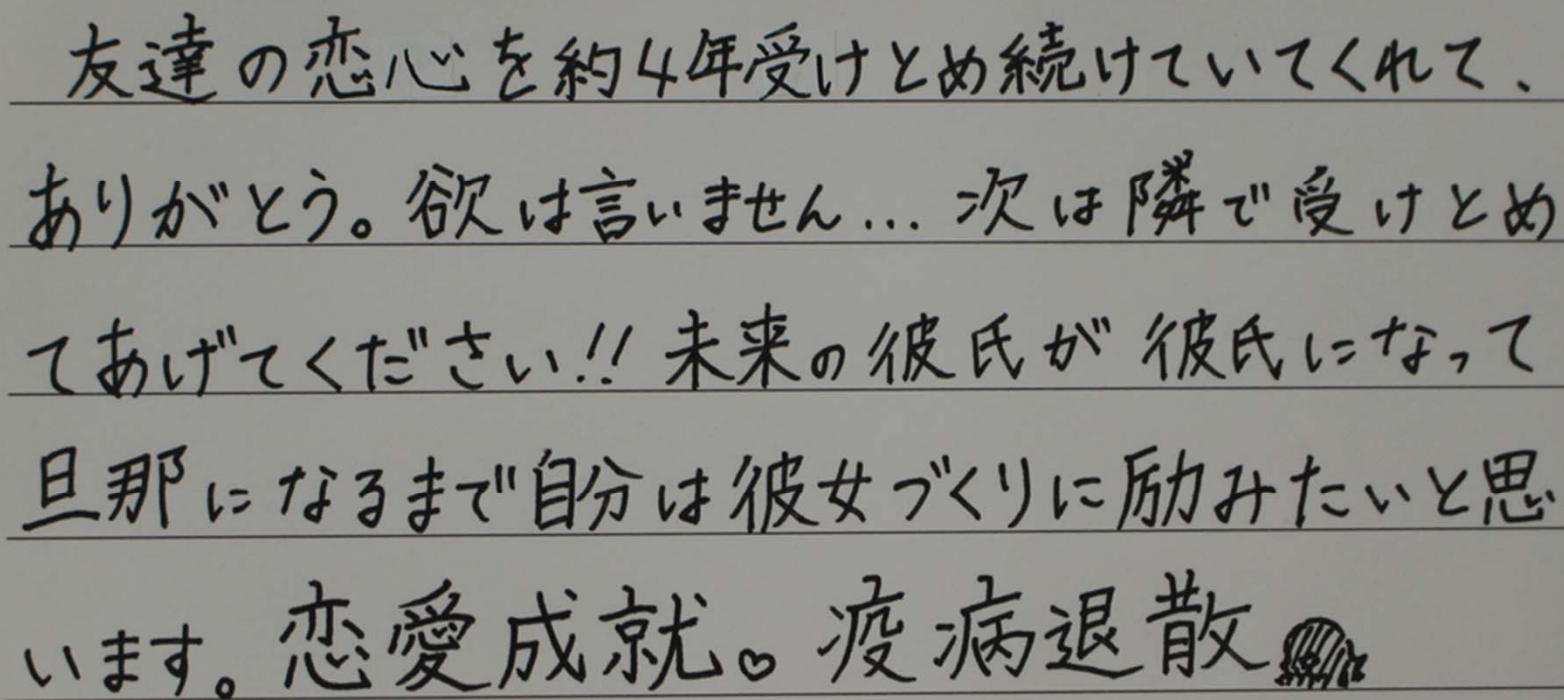 友達の恋心を約4年受けとめ続けていてくれて、
ありがとう。欲は言いません... 次は隣で受けとめ
てあげてください!! 未来の彼氏が彼氏になって
旦那になるまで自分は彼女づくりに励みたいと思
います。恋愛成就。♡ 疫病退散